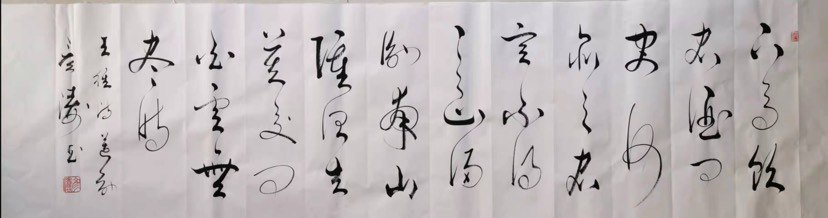 下馬飲
君酒問
君何
所之君
言不得
意歸
臥南山
陲但去
莫復問
白雲無
盡時
王維詩送別